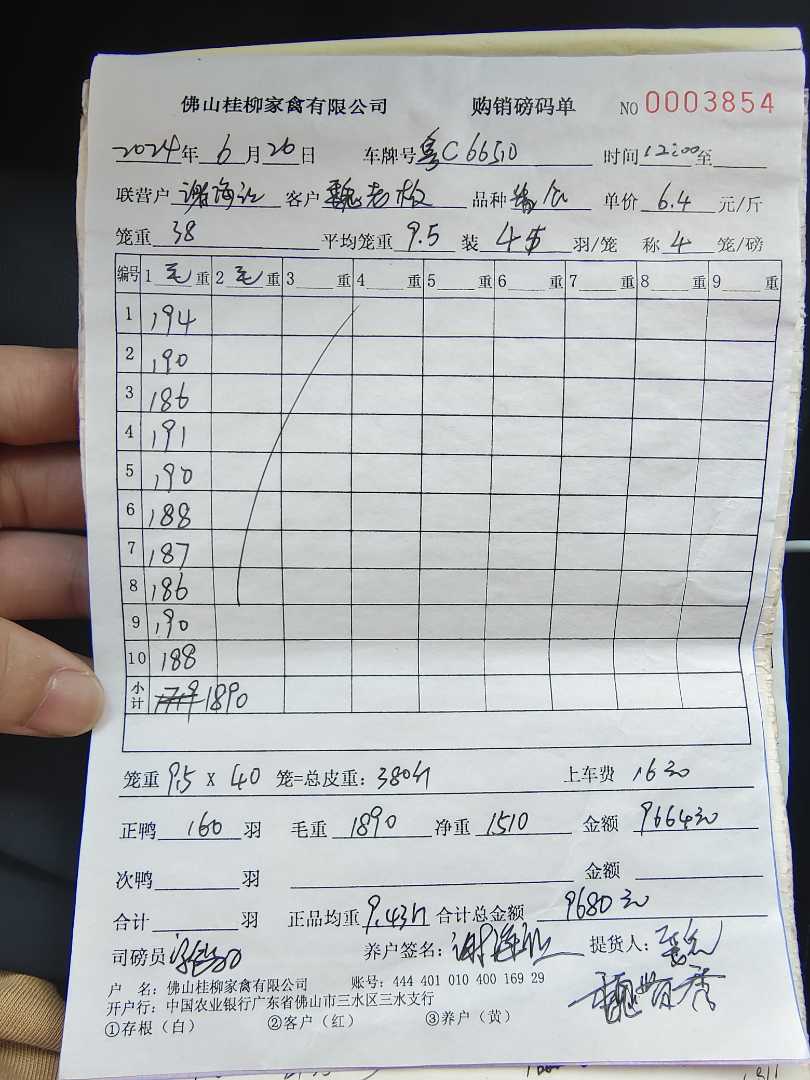 佛山桂柳家禽有限公司 购销磅码单 NO 0003854
2024年 6月 26日 车牌号 粤C66510 时间 12:00至
联营户 谢海江 客户 魏老板 品种 单价 6.4 元/斤
笼重 38 平均笼重 9.5 装 4 羽/笼 称 4 笼/磅
编号 1 毛 重 2 毛 重 3 重 4 重 5 重 6 重 7 重 8 重 9 重
1 194
2 190
3 186
4 191
5 190
6 188
7 187
8 186
9 190
10 188
小计 1890
笼重 9.5 X 40 笼=总皮重: 380斤 上车费 16元
正鸭 160 羽 毛重 1890 净重 1510 金额 9664元
次鸭 羽 金额
合计 羽 正品均重 9.43斤 合计总金额 9680元
司磅员 养户签名: 提货人:
户 名: 佛山桂柳家禽有限公司 账号: 444 401 010 400 169 29
开户行: 中国农业银行广东省佛山市三水区三水支行
①存根（白） ②客户（红） ③养户（黄）